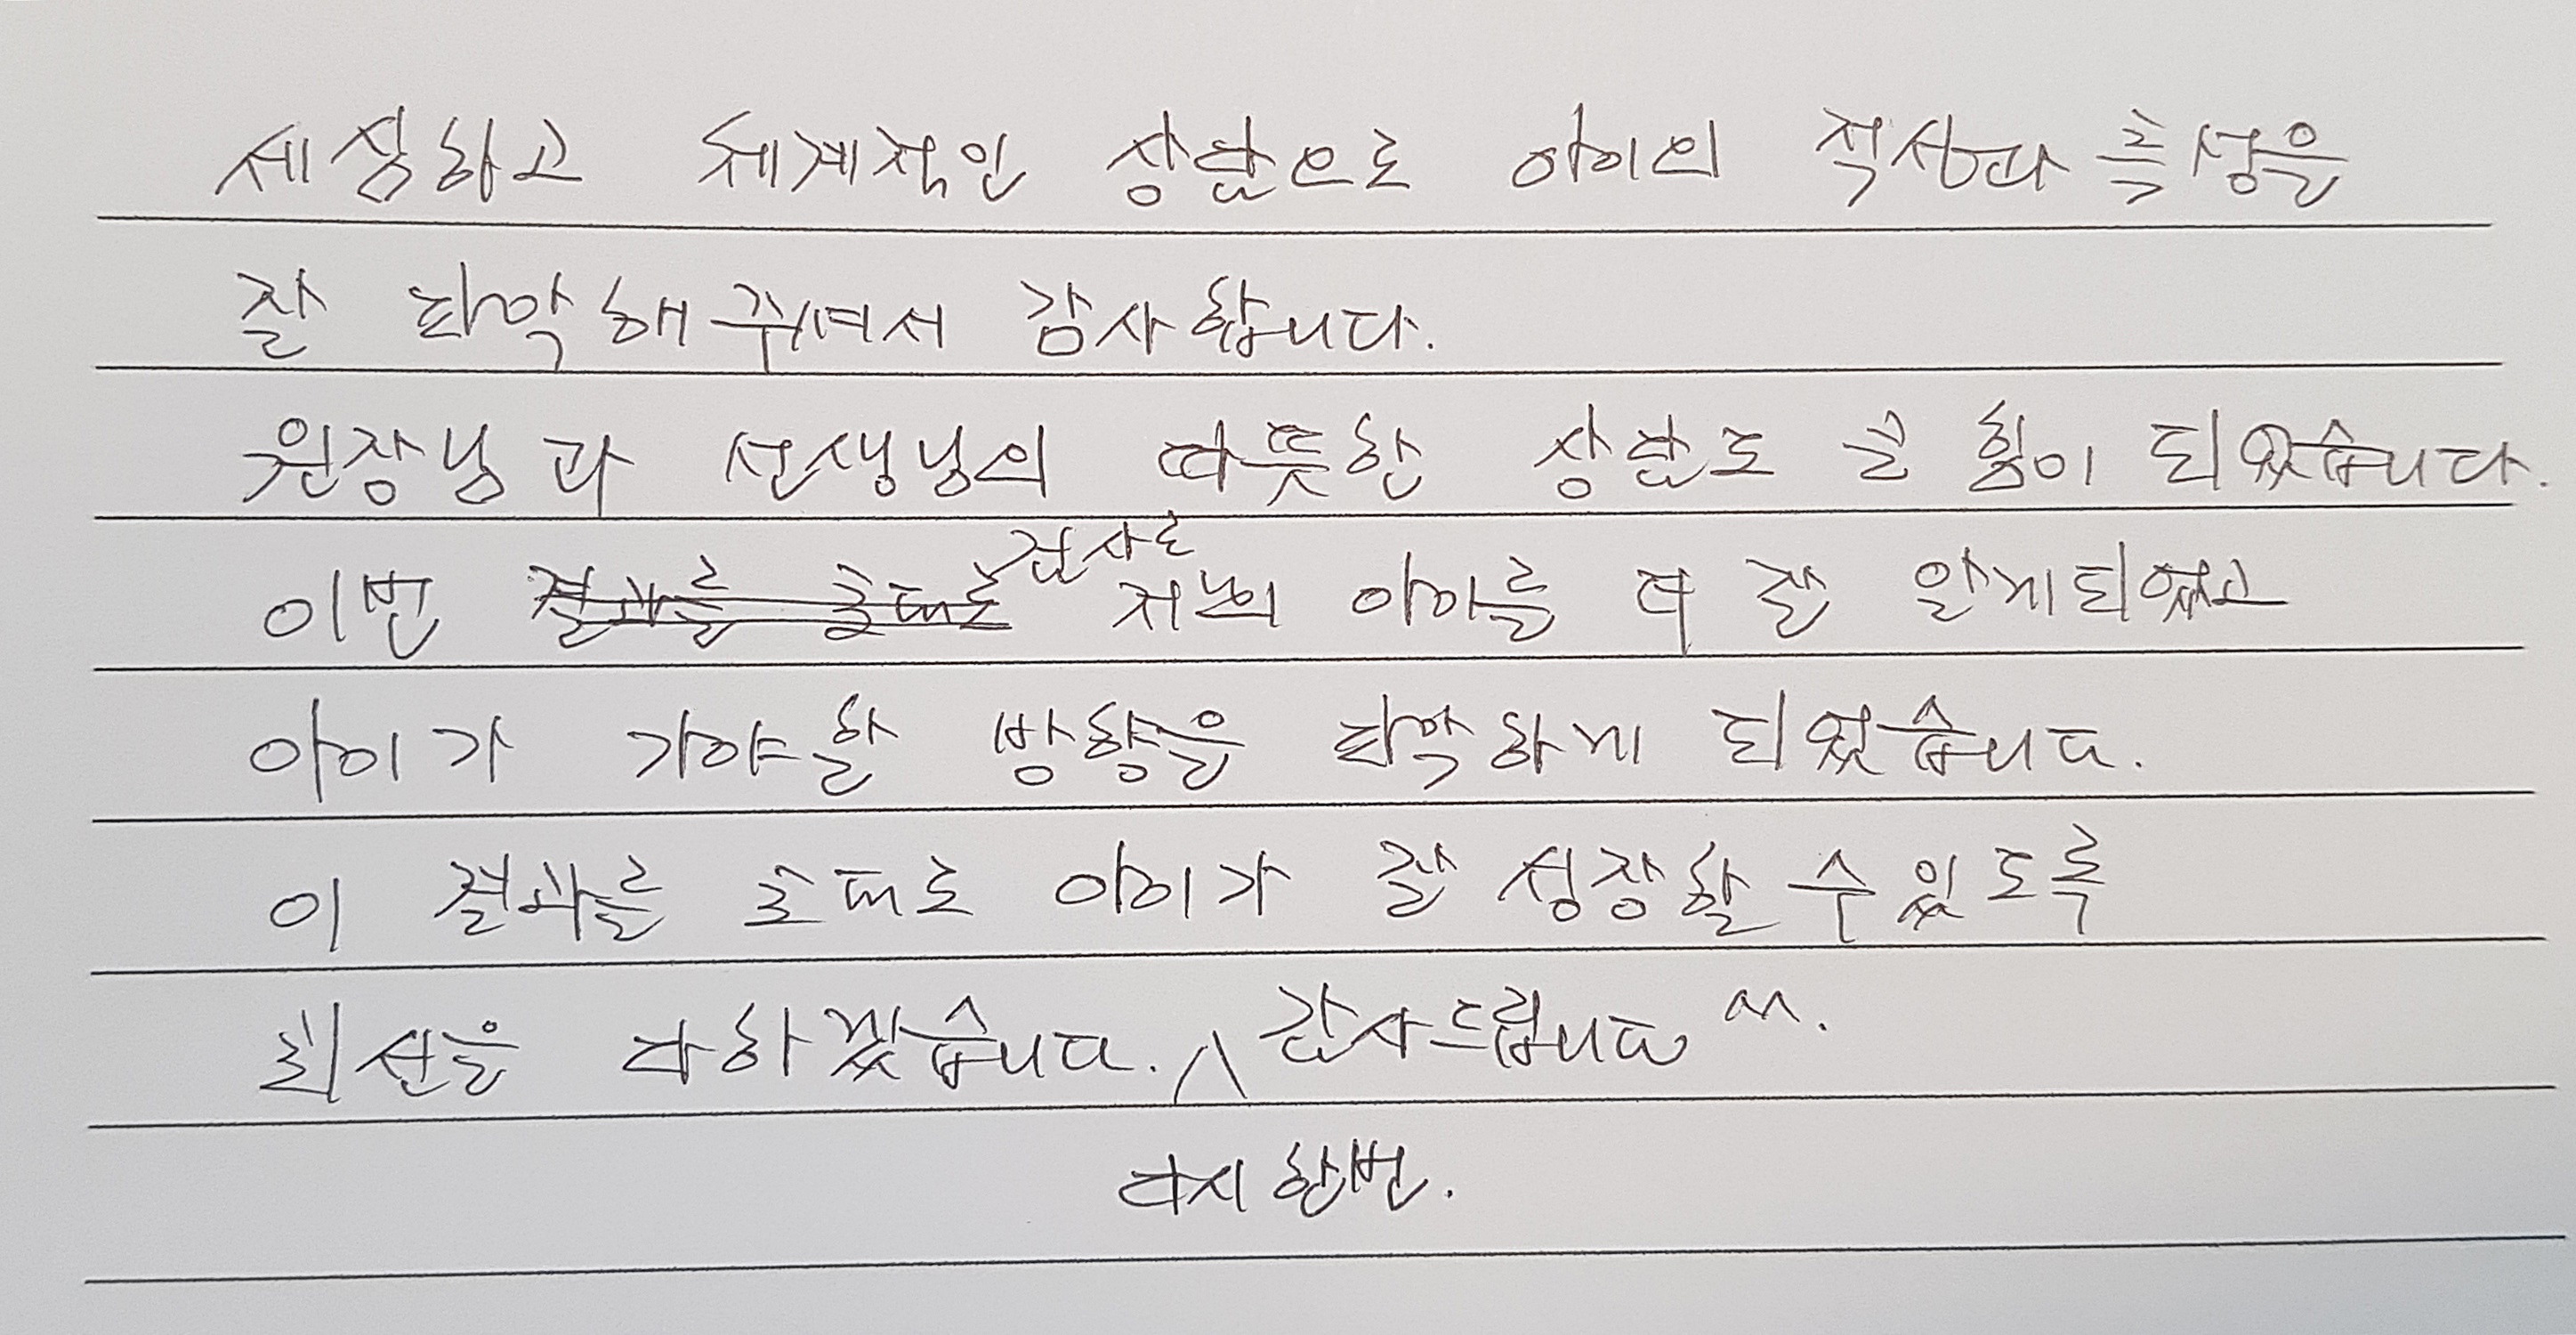 세심하고 체계적인 상담으로 아이의 적성과 특성을
잘 파악해 주셔서 감사합니다.
원장님과 선생님의 따뜻한 상담도 큰 힘이 되었습니다.
이번 결과를 토대로 검사로 저희 아이를 더 잘 알게되었고
아이가 가야할 방향을 파악하게 되었습니다.
이 결과를 토대로 아이가 잘 성장할 수 있도록
최선을 다하겠습니다. ∧ 감사드립니다 ^^.
다시 한번.